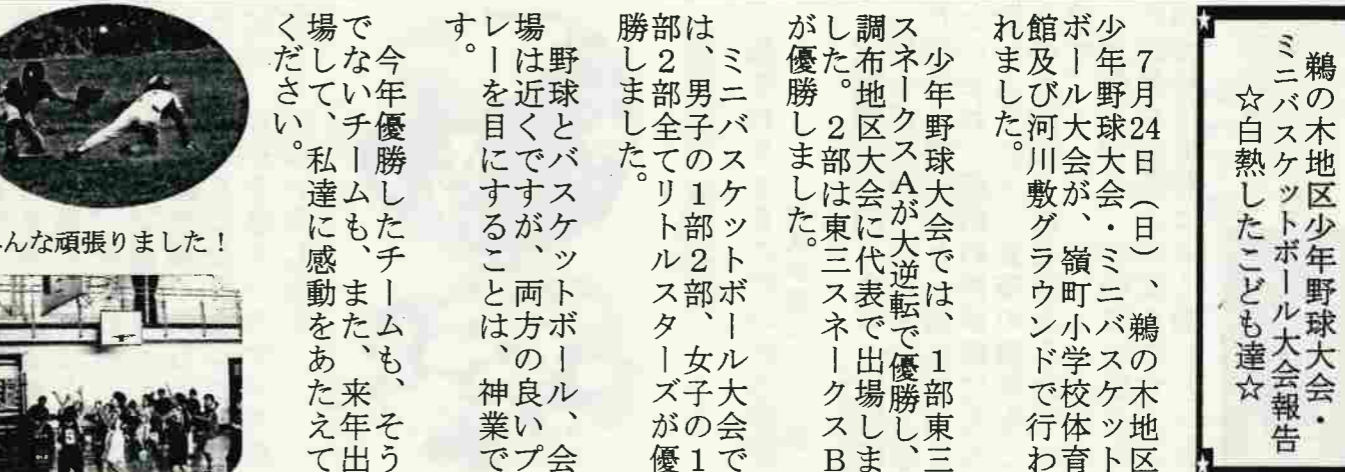 鵜の木地区少年野球大会・
ミニバスケットボール大会報告
☆白熱したこども達☆
7月24日（日）、鵜の木地区
少年野球大会・ミニバスケット
ボール大会が、嶺町小学校体育
館及び河川敷グラウンドで行わ
れました。
少年野球大会では、1部東三
スネークスAが大逆転で優勝し、
調布地区大会に代表で出場しま
した。2部は東三スネークスB
が優勝しました。
ミニバスケットボール大会で
は、男子の1部2部、女子の1
部2部全てリトルスターズが優
勝しました。
野球とバスケットボール、会
場は近くですが、両方の良いプ
レーを目にすることは、神業で
す。
今年優勝したチームも、そう
でないチームも、また、来年出
場して、私達に感動をあたえて
ください。
んな頑張りました！